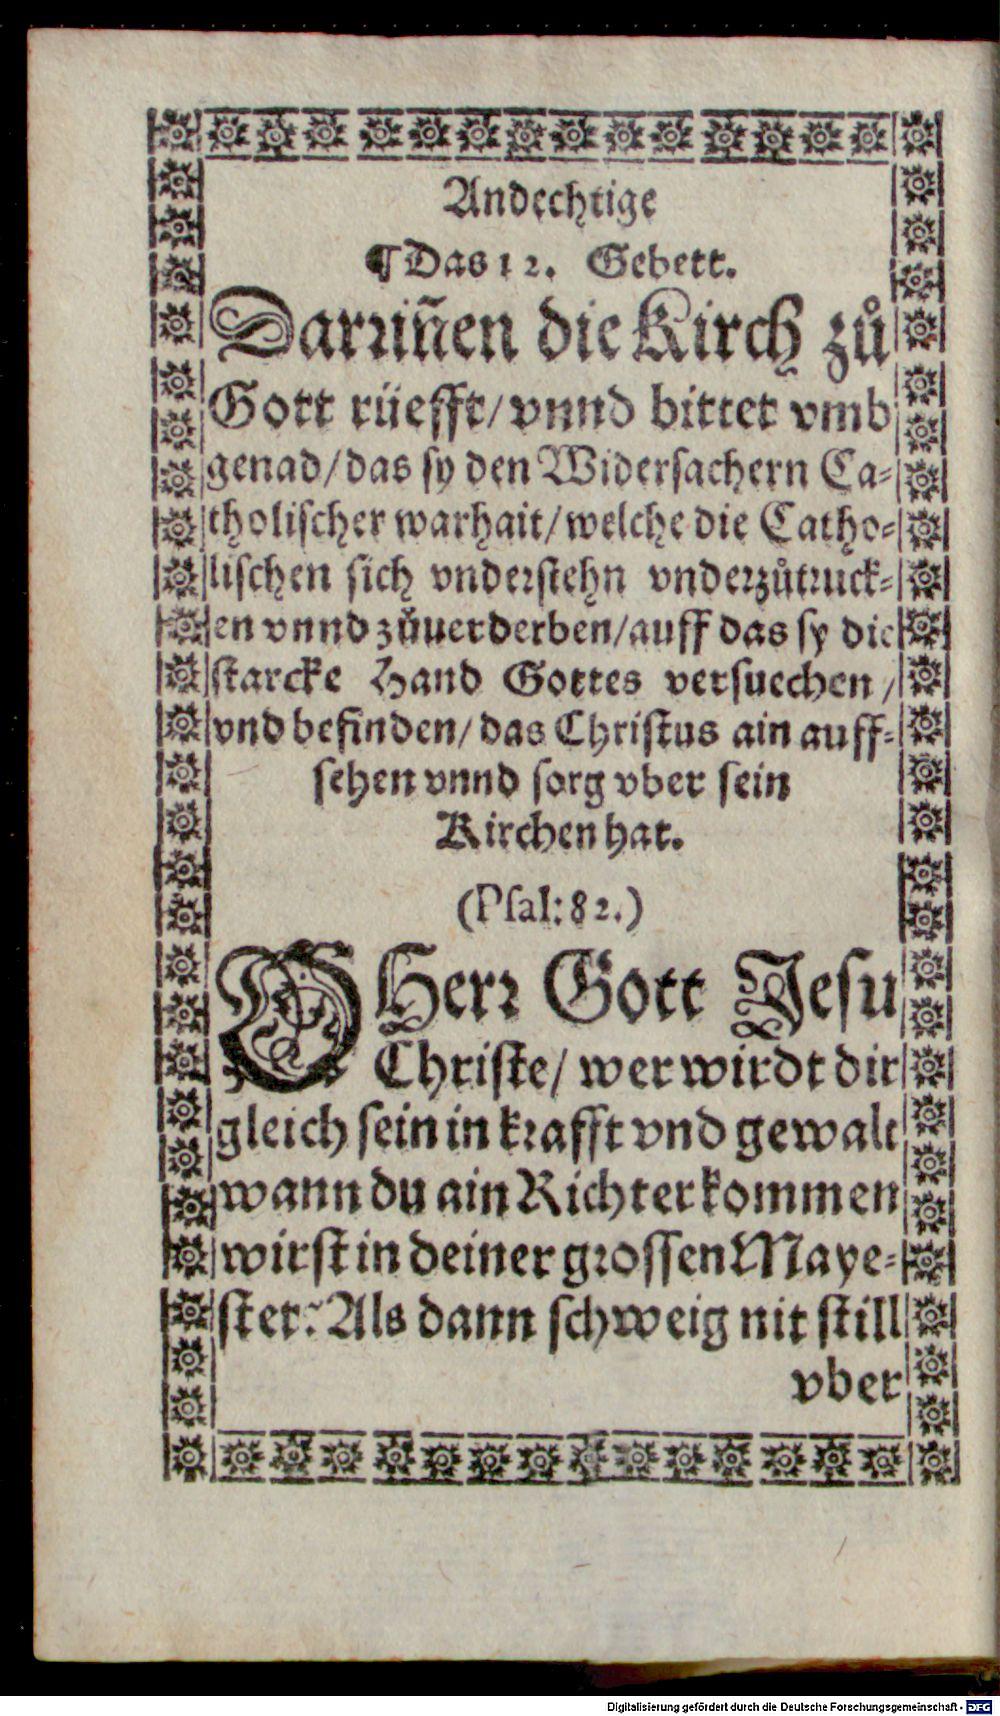 Andechtige
¶ Das 12. Gebett.
Darriñen die Kirch zů
Gott rüefft/ vnnd bittet vmb
genad/ das sy den Widersachern Ca-
tholischer warhait/ welche die Catho-
lischen sich vnderstehn vnderzůtruck-
en vnnd zůuerderben/ auff das sy die
starcke Hand Gottes versuechen/
vnd befinden/ das Christus ain auff-
sehen vnnd sorg vber sein
Kirchen hat.
(Psal: 82.)
O Herr Gott Jesu
Christe/ wer wirdt dir
gleich sein in krafft vnd gewalt
wann du ain Richter kommen
wirst in deiner grossen Maye-
stet? Als dann schweig nit still
vber
Digitalisierung gefördert durch die Deutsche Forschungsgemeinschaft - DFG